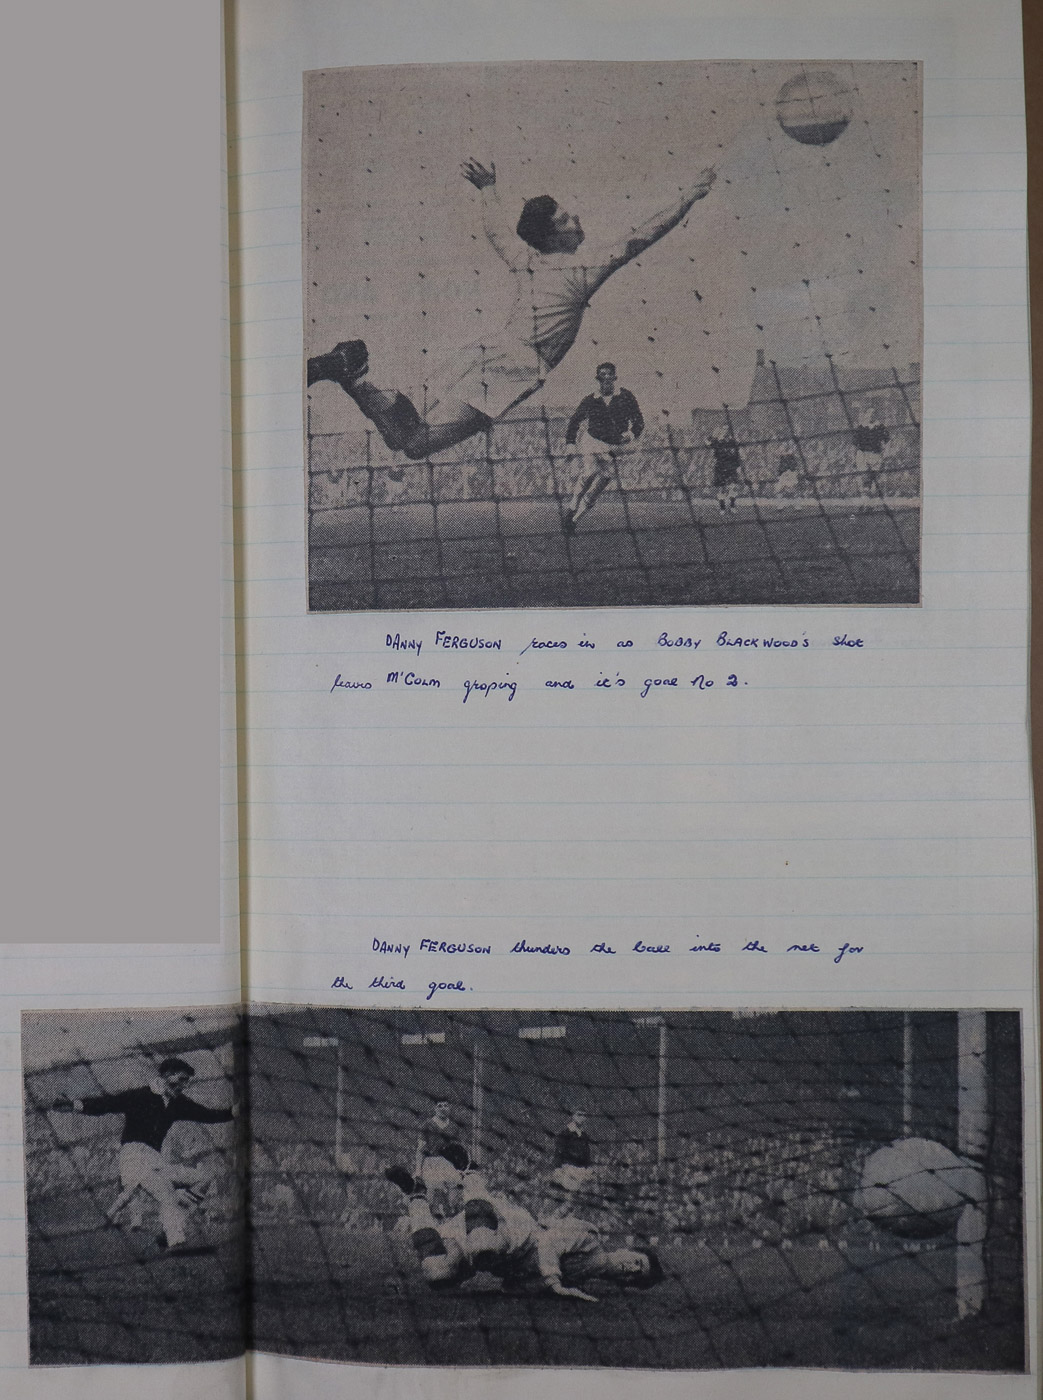 DANNY FERGUSON races in as BOBBY BLACKWOOD'S shot
leaves M'COLM groping and it's goal No 2.
DANNY FERGUSON thunders the ball into the net for
the third goal.